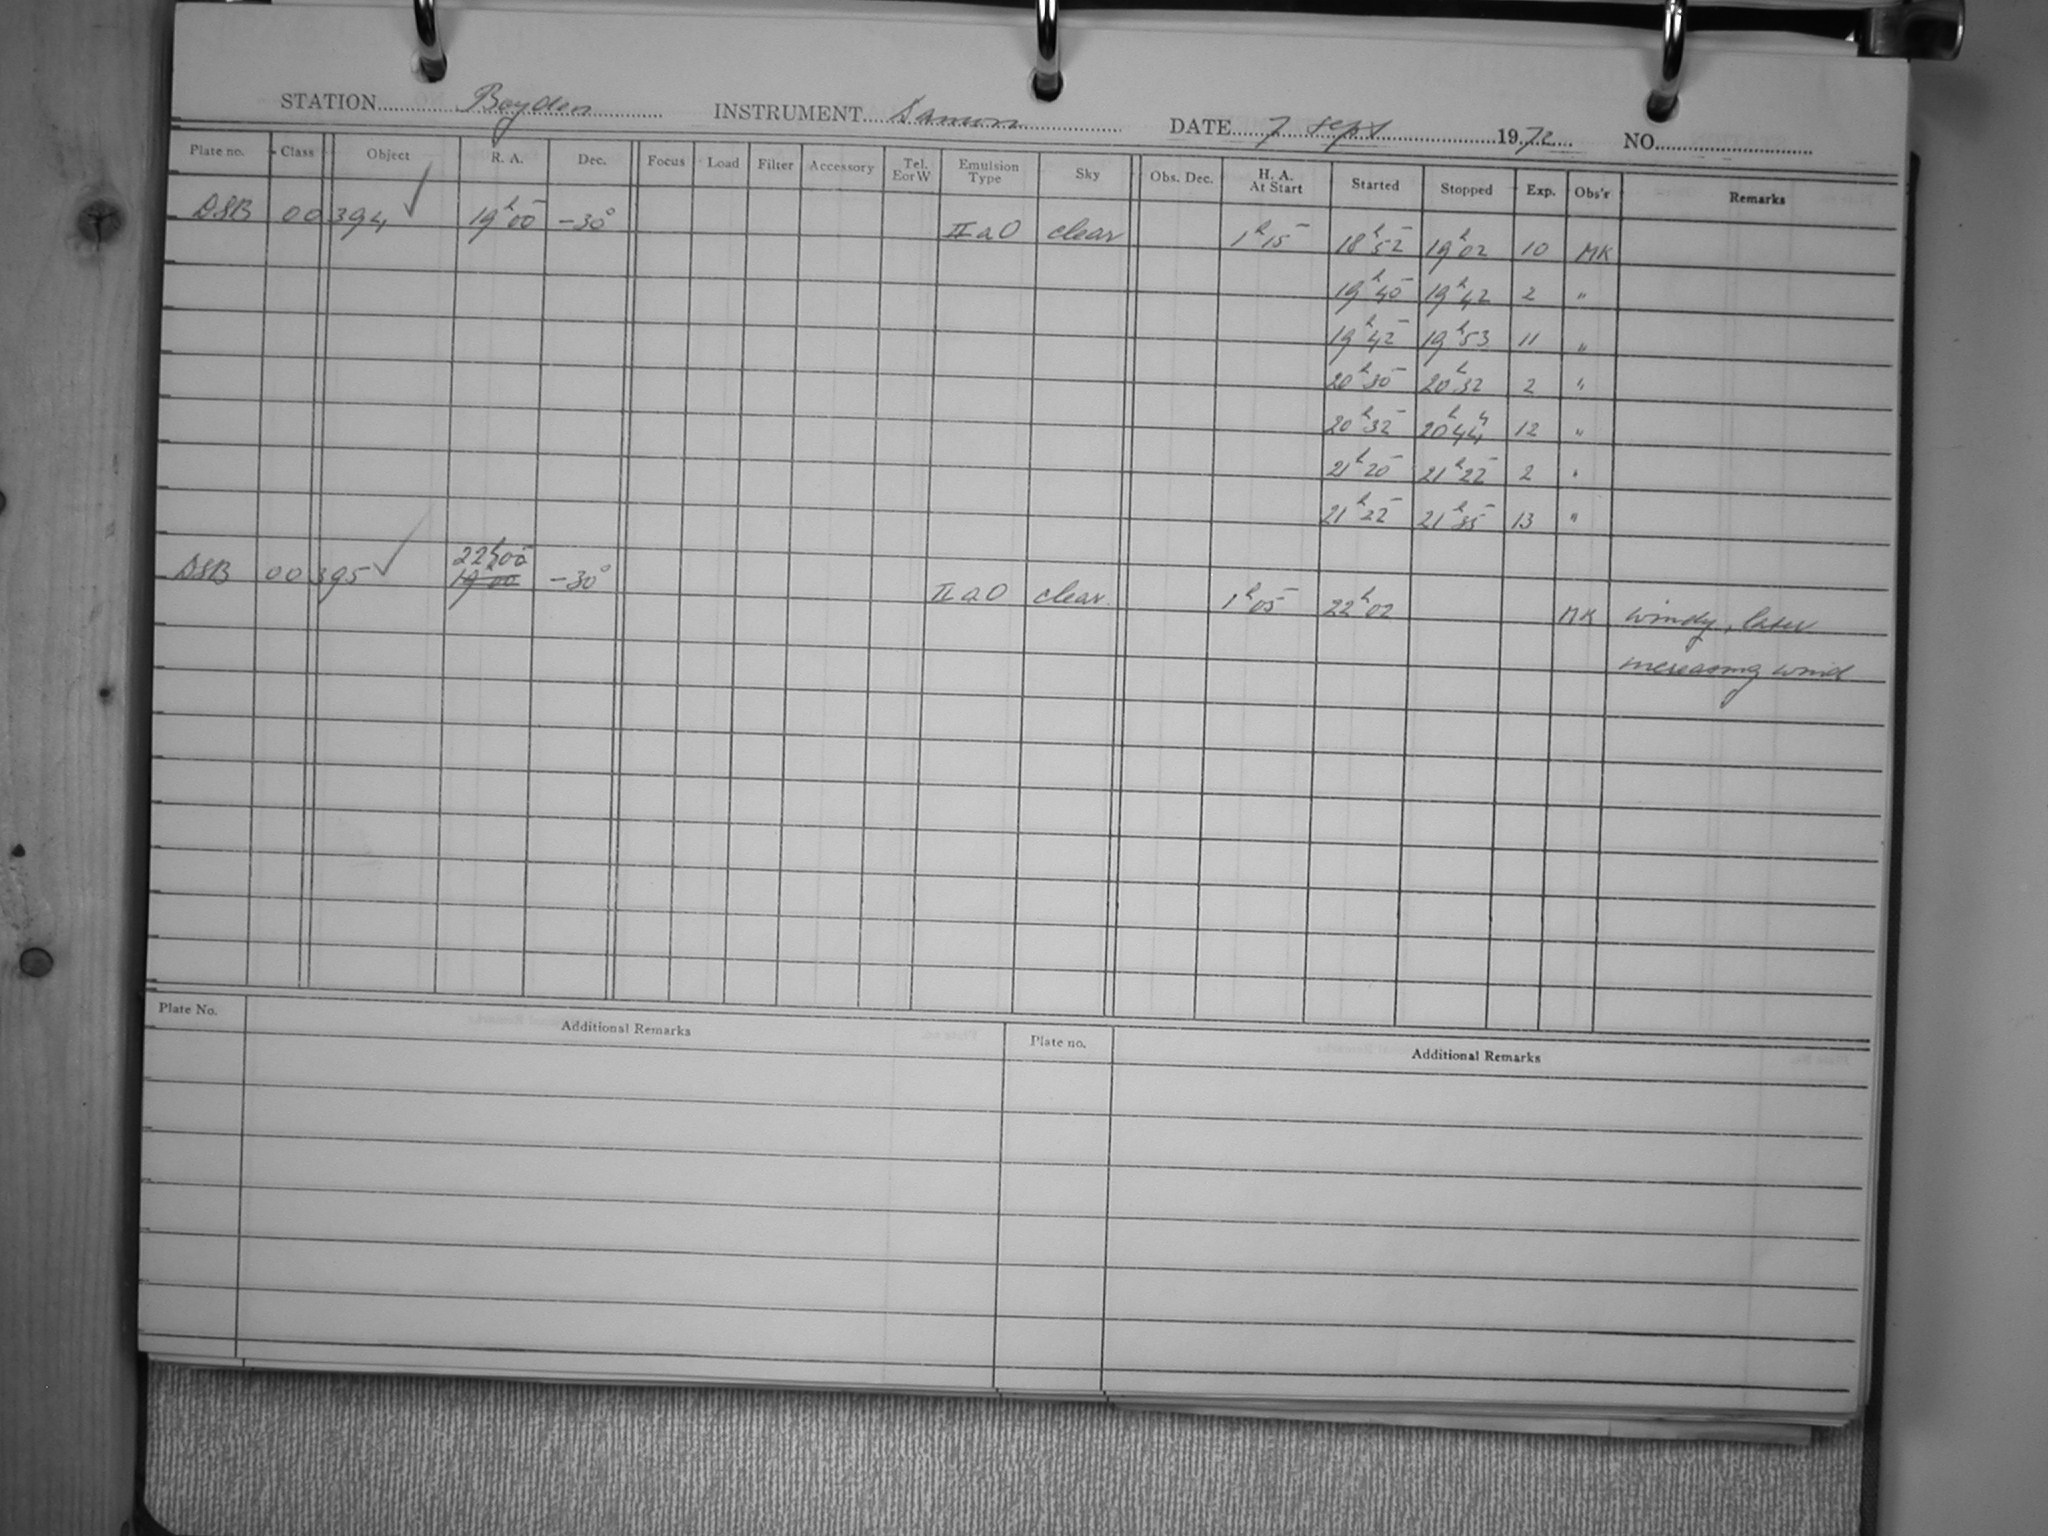 STATION Boyden INSTRUMENT Damon DATE 7 Sept 1972 NO.
Plate no. Class Object R. A. Dec. Focus Load Filter Accessory Tel. E or W Emulsion Type Sky Obs. Dec. H. A. At Start Started Stopped Exp. Obs'r Remarks
DSB 00394 ✓ 19h00 -30° IIaO clear 1h15 18h52 19h02 10 MK
19h40 19h42 2 "
19h42 19h53 11 "
20h30 20h32 2 "
20h32 20h44 12 "
21h20 21h22 2 "
21h22 21h35 13 "
22h00
DSB 00395 ✓ 19h00 -30° IIaO clear 1h05 22h02 MK windy, later
increasing wind
Plate No. Additional Remarks Plate no. Additional Remarks